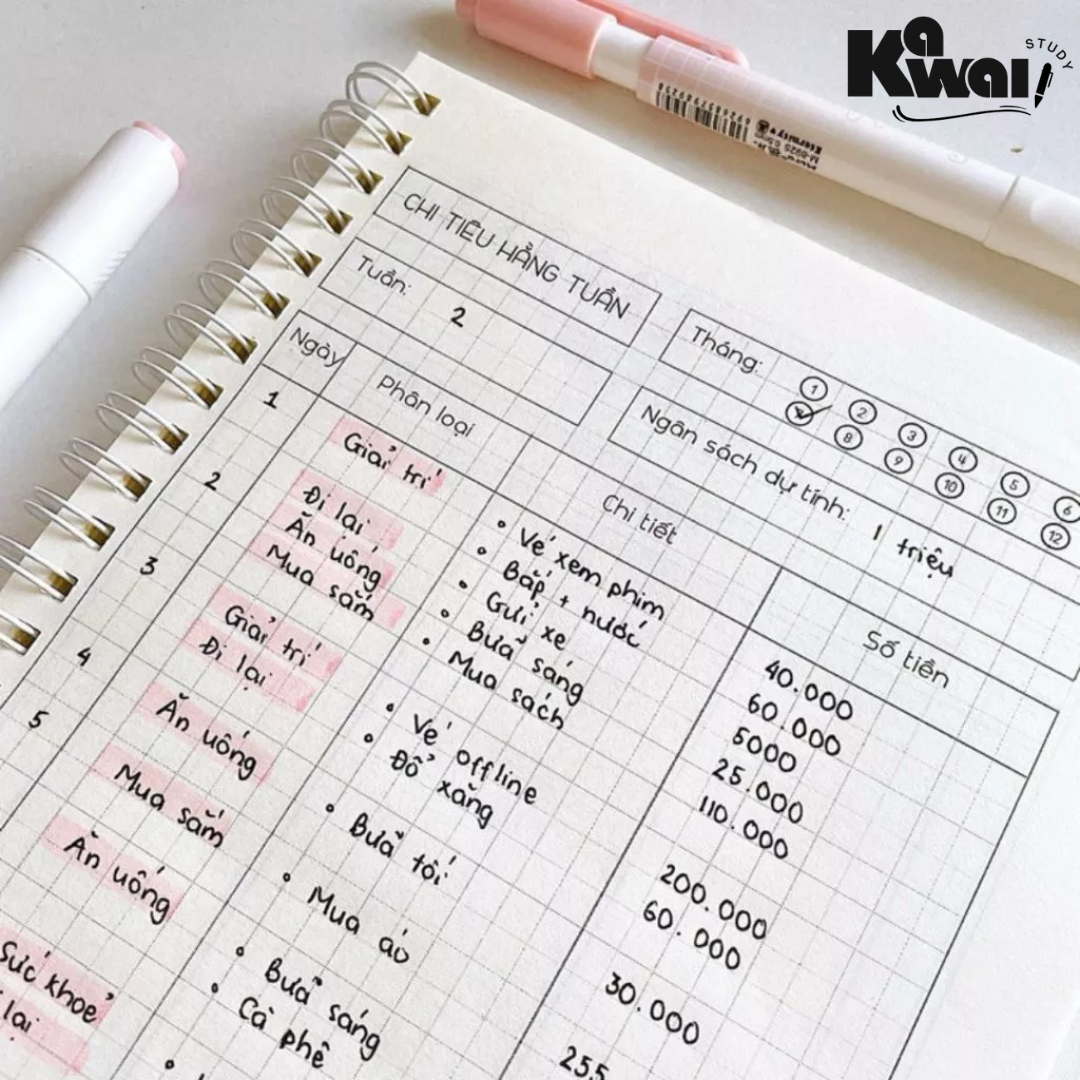 Kawai!
STUDY
6926857989256
M-6925 0.5mm
CHI TIÊU HẰNG TUẦN
Tuần: 2
Tháng: 1 2 3 4 5 6
8 9 10 11 12
Ngân sách dự tính: 1 triệu
Ngày Phân loại Chi tiết Số tiền
1 Giải trí • Vé xem phim 40.000
• Bắp + nước 60.000
2 Đi lại • Gửi xe 5000
Ăn uống • Bữa sáng 25.000
Mua sắm • Mua sách 110.000
3 Giải trí • Vé offline 200.000
Đi lại • Đổ xăng 60.000
4 Ăn uống • Bữa tối 30.000
5 Mua sắm • Mua áo 255
Ăn uống • Bữa sáng
• Cà phê
Sức khoẻ
lại